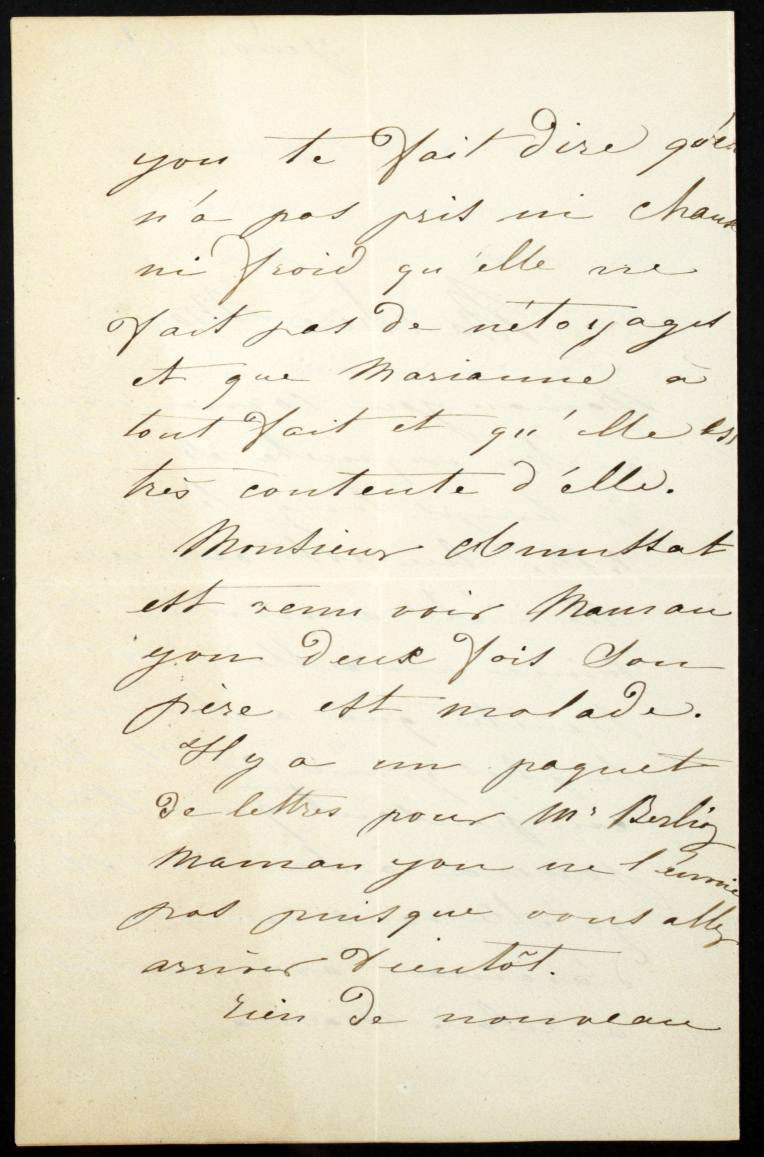 you te fait dire qu'ell
n'a pas pris ni chaux
ni froid qu'elle ne
fait pas de nétoyages
et que Marianne a
tout fait et qu'elle est
très contente d'elle.
Monsieur Amussat
est venu voir Maman
you deux fois Son
père est malade.
Il y a un paquet
de lettres pour Mr Berlioz
Maman you ne l'envoie
pas puisque vous allez
arriver bientôt.
rien de nouveau